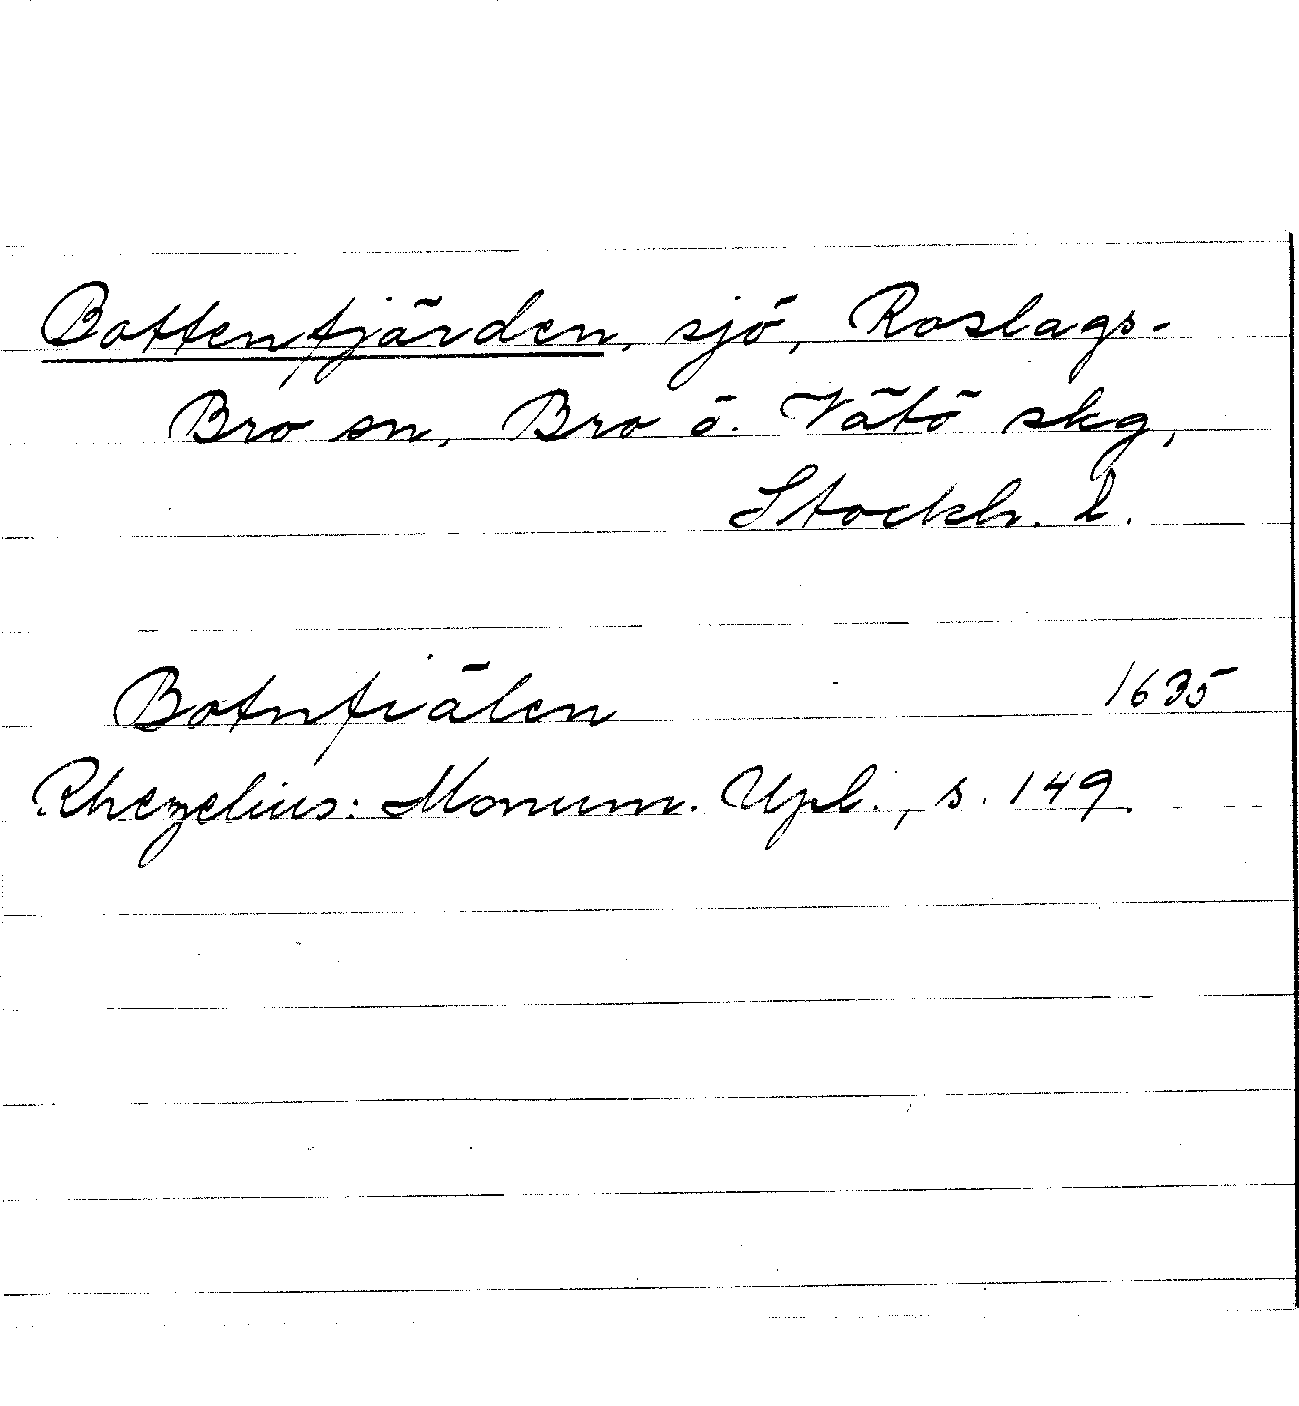 Bottenfjärden, sjö, Roslags-
Bro sn, Bro o. Vätö skg,
Stockh. l.
Botnfiälen 1635
Rhezelius: Monum. Upl., s. 149.